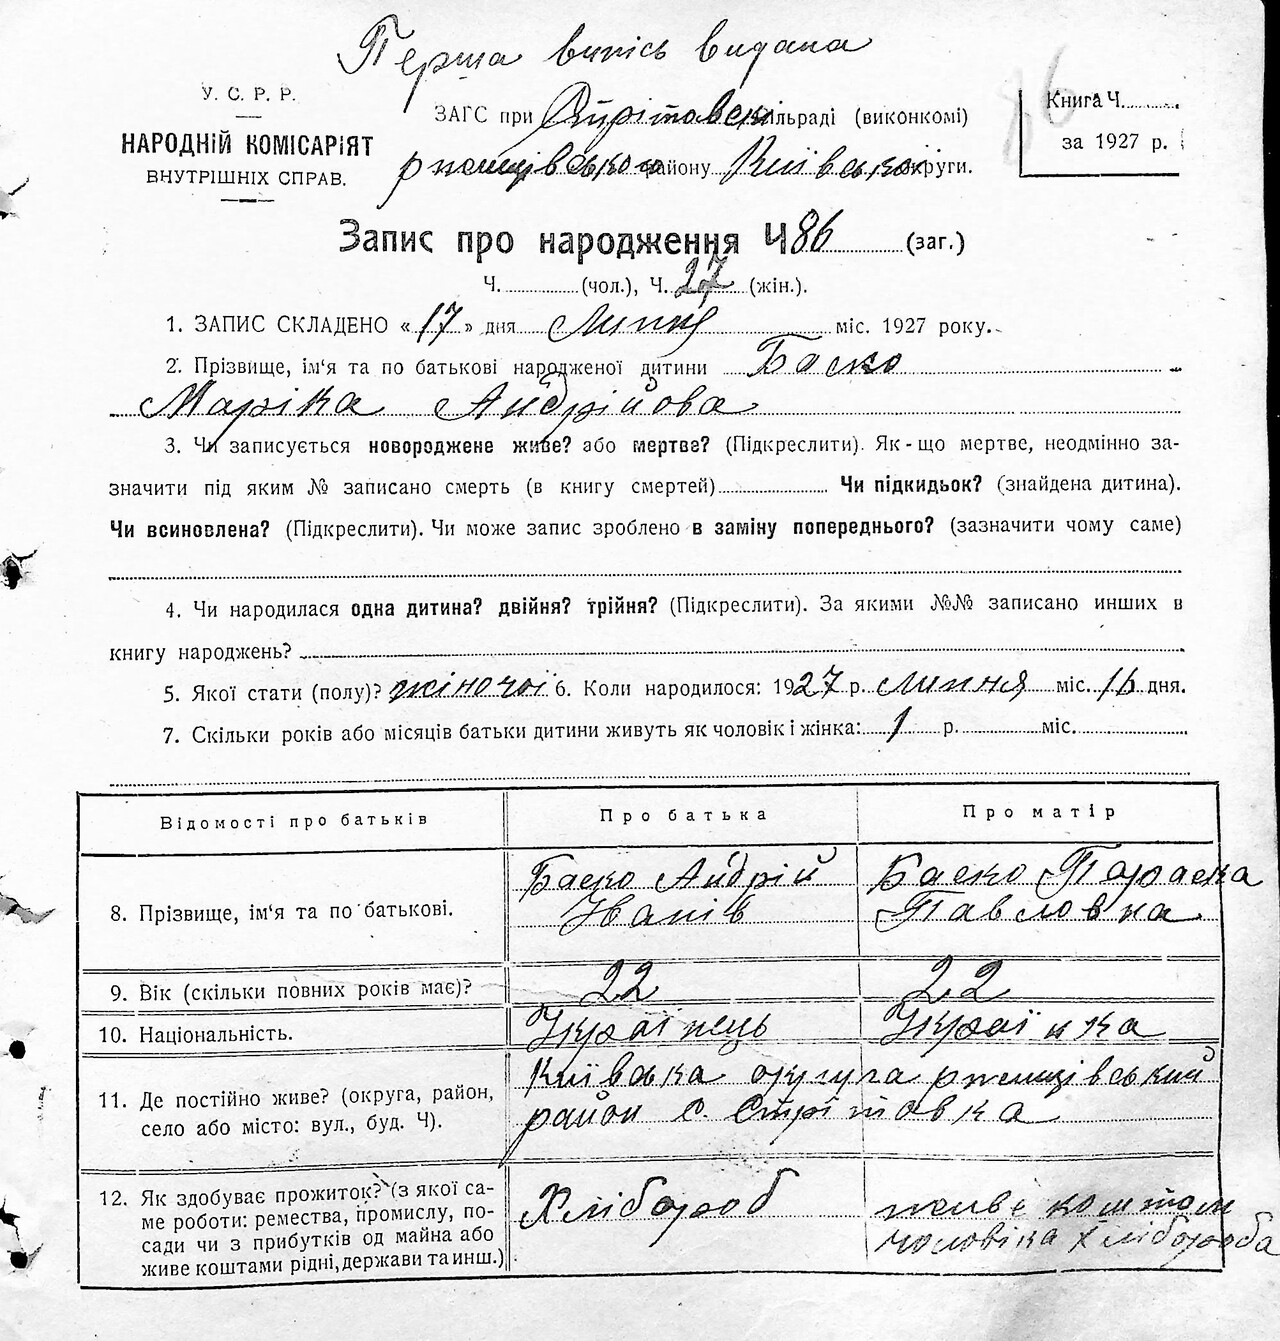 Перша випись видана
У. С. Р. Р.
НАРОДНІЙ КОМІСАРІЯТ
ВНУТРІШНІХ СПРАВ.
ЗАГС при Стрітовскі сільраді (виконкомі)
ржищівського району Київської округи.
86
Книга Ч.
за 1927 р.
Запис про народження Ч 86 (заг.)
Ч. (чол.), Ч. 27 (жін.).
1. ЗАПИС СКЛАДЕНО «17» дня Липня міс. 1927 року.
2. Прізвище, ім'я та по батькові народженої дитини Баско
Маріка Андрійова
3. Чи записується новороджене живе? або мертве? (Підкреслити). Як-що мертве, неодмінно за-
значити під яким № записано смерть (в книгу смертей) Чи підкидьок? (знайдена дитина).
Чи всиновлена? (Підкреслити). Чи може запис зроблено в заміну попереднього? (зазначити чому саме)
4. Чи народилася одна дитина? двійня? трійня? (Підкреслити). За якими №№ записано инших в
книгу народжень?
5. Якої стати (полу)? жіночої 6. Коли народилося: 1927 р. липня міс. 16 дня.
7. Скільки років або місяців батьки дитини живуть як чоловік і жінка: 1 р. міс.
Відомості про батьків
Про батька
Про матір
8. Прізвище, ім'я та по батькові.
Баско Андрій
Іванів
Баско Параска
Павловна
9. Вік (скільки повних років має)?
22
22
10. Національність.
Українець
Українка
11. Де постійно живе? (округа, район,
село або місто: вул., буд. Ч).
Київська округа ржищівський
район с. Стрітовка
12. Як здобуває прожиток? (з якої са-
ме роботи: ремества, промислу, по-
сади чи з прибутків од майна або
живе коштами рідні, держави та инш.)
Хлібороб
живе коштом
чоловіка хлібороба